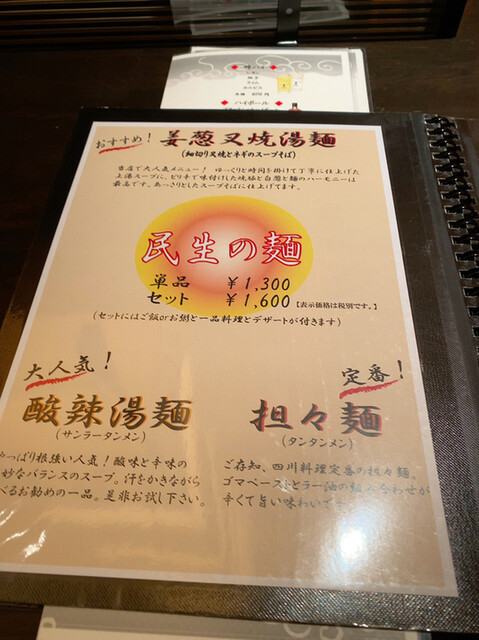 おすすめ！ 姜葱叉焼湯麺
(細切り叉焼とネギのスープそば)
当店で大人気メニュー！ ゆっくりと時間を掛けて丁寧に仕上げた
上湯スープに、ピリ辛で味付けした焼豚と白葱と麺のハーモニーは
最高です。あっさりとしたスープそばに仕上げてます。
民生の麺
単品 ￥1,300
セット ￥1,600 【表示価格は税別です。】
(セットにはご飯orお粥と一品料理とデザートが付きます)
大人気！
酸辣湯麺
(サンラータンメン)
っぱり根強い人気！酸味と辛味の
妙なバランスのスープ。汗をかきながら
べるお勧めの一品。是非お試し下さい。
定番！
担々麺
(タンタンメン)
ご存知、四川料理定番の担々麺。
ゴマペーストとラー油の組み合わせが
辛くて旨い味わいで
ハイボール